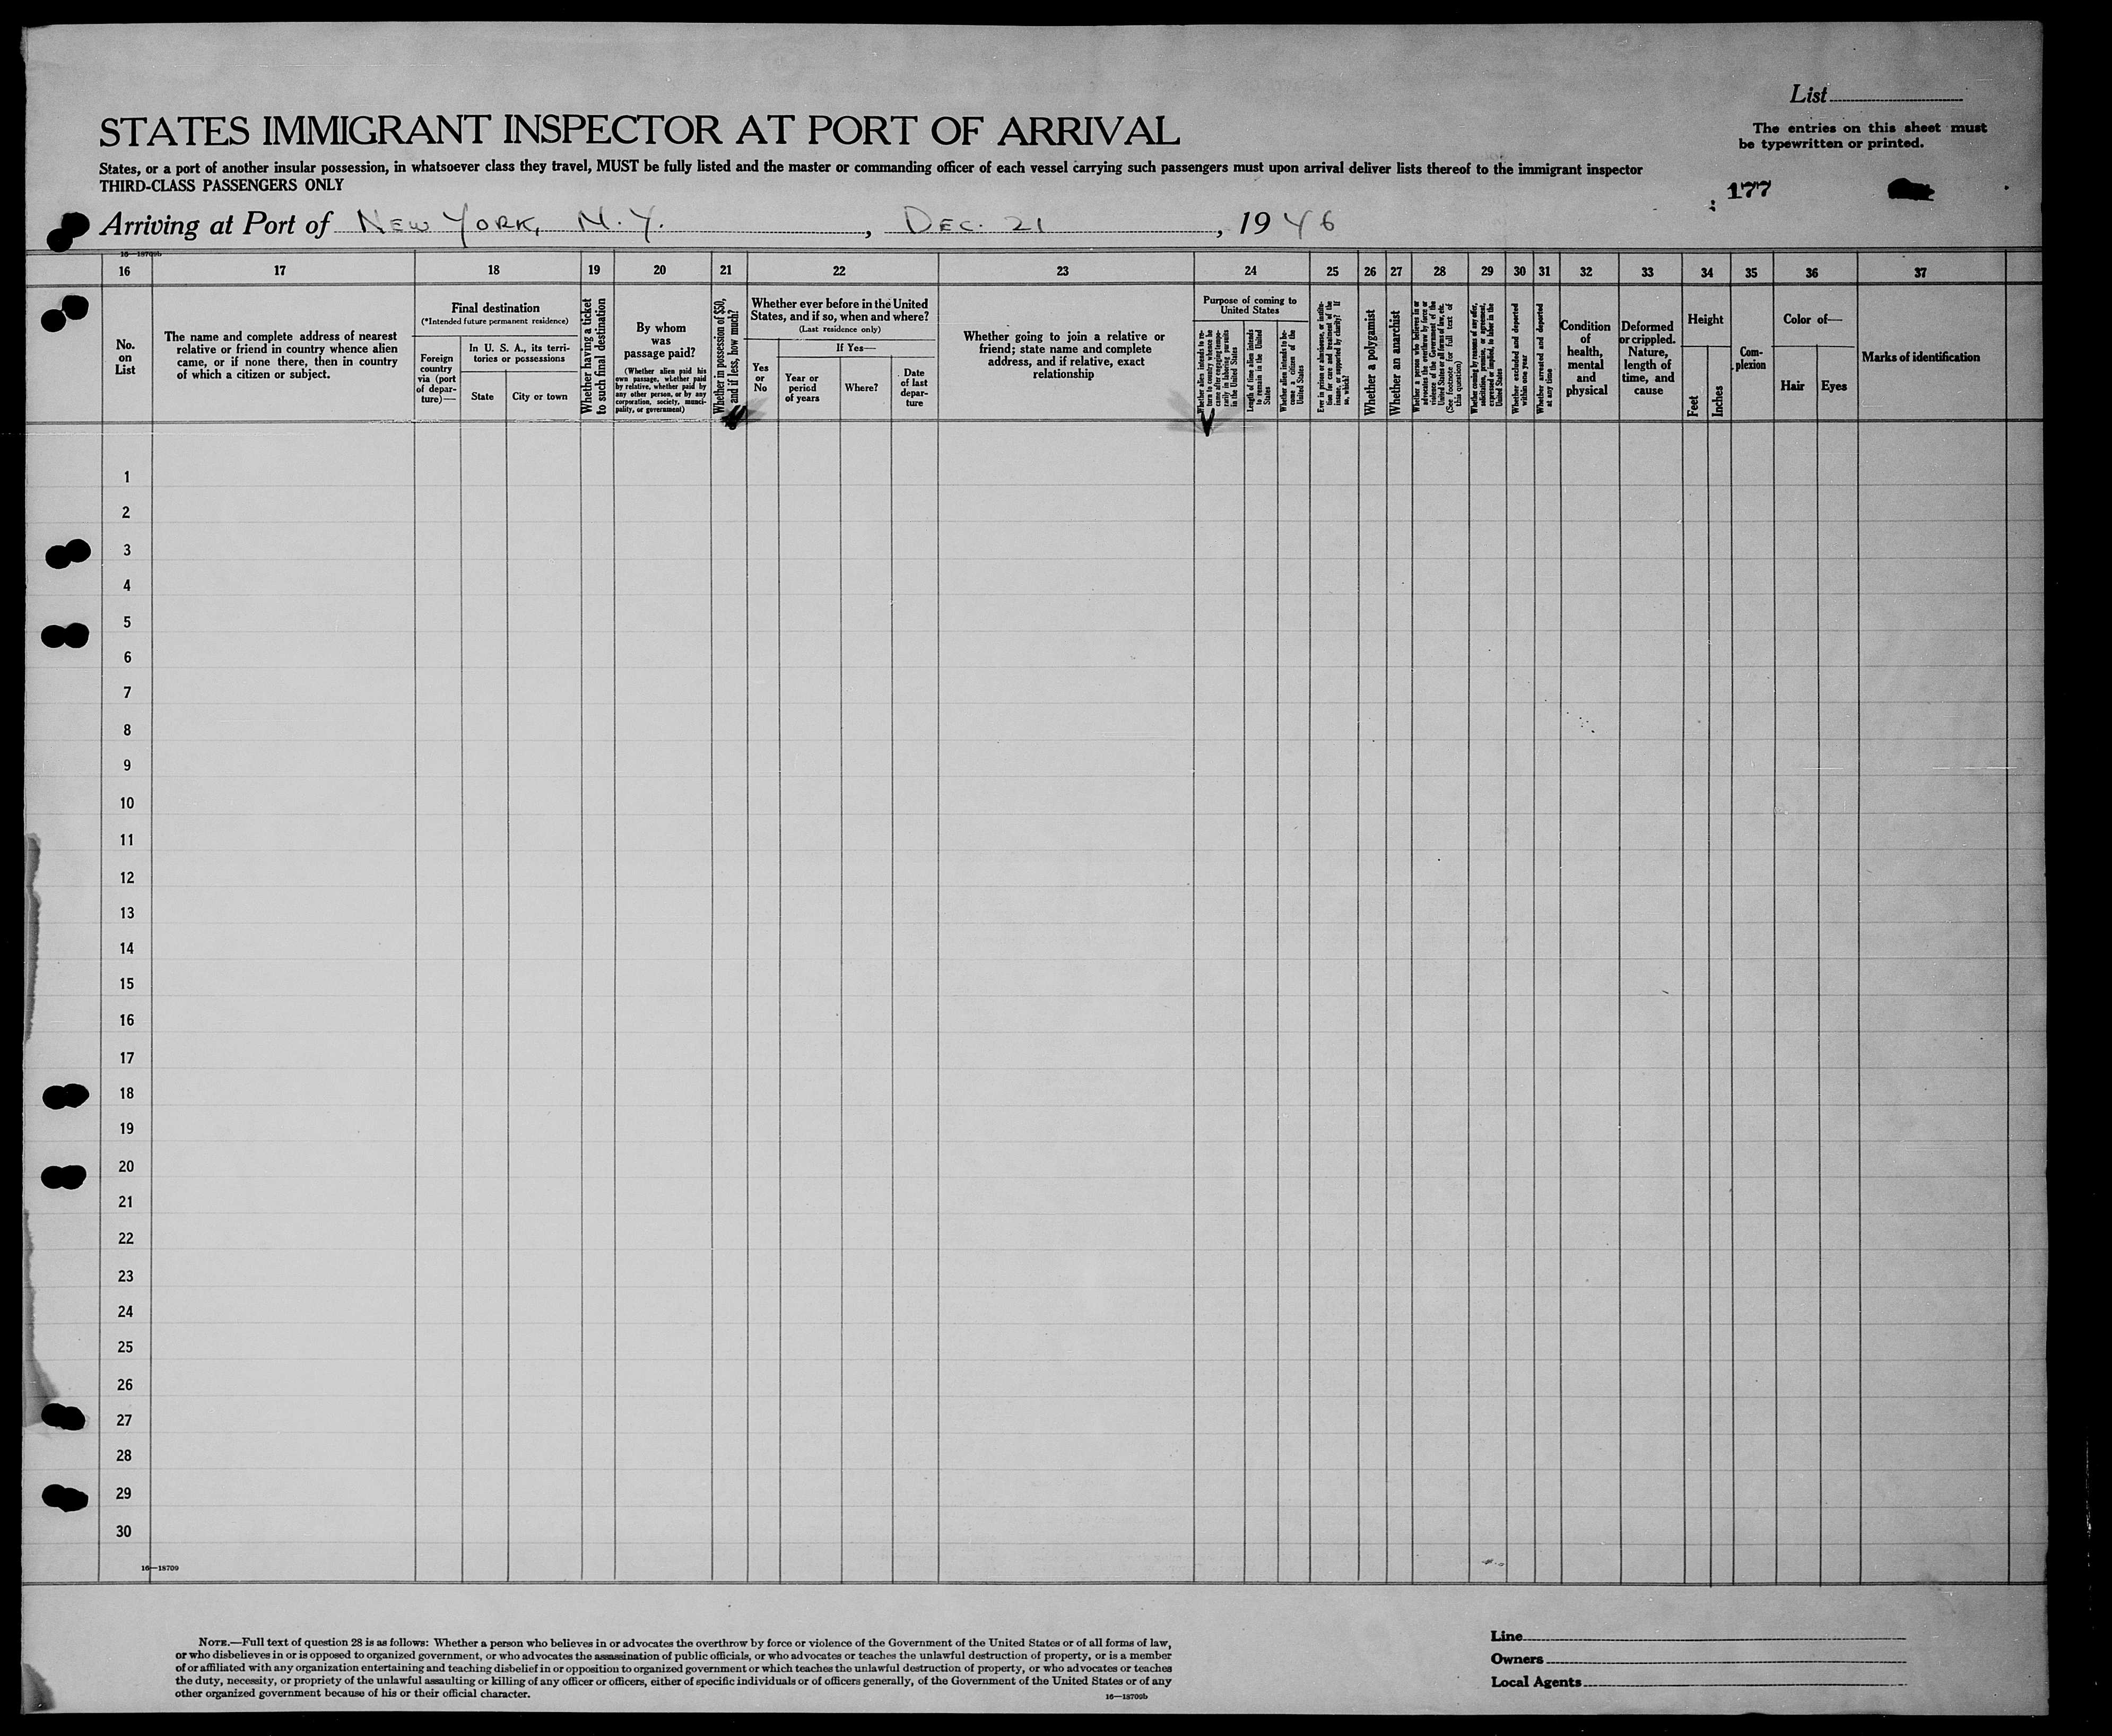 List
STATES IMMIGRANT INSPECTOR AT PORT OF ARRIVAL
The entries on this sheet must
be typewritten or printed.
States, or a port of another insular possession, in whatsoever class they travel, MUST be fully listed and the master or commanding officer of each vessel carrying such passengers must upon arrival deliver lists thereof to the immigrant inspector
THIRD-CLASS PASSENGERS ONLY
177
Arriving at Port of NEW YORK, N.Y., DEC. 21, 1946
16—18709b
16 17 18 19 20 21 22 23 24 25 26 27 28 29 30 31 32 33 34 35 36 37
No.
on
List
The name and complete address of nearest
relative or friend in country whence alien
came, or if none there, then in country
of which a citizen or subject.
Final destination
(*Intended future permanent residence)
Foreign
country
via (port
of depar-
ture)—
In U. S. A., its terri-
tories or possessions
State
City or town
Whether having a ticket
to such final destination
By whom
was
passage paid?
(Whether alien paid his
own passage, whether paid
by relative, whether paid by
any other person, or by any
corporation, society, munici-
pality, or government)
Whether in possession of $50,
and if less, how much?
Whether ever before in the United
States, and if so, when and where?
(Last residence only)
Yes
or
No
If Yes—
Year or
period
of years
Where?
Date
of last
depar-
ture
Whether going to join a relative or
friend; state name and complete
address, and if relative, exact
relationship
Purpose of coming to
United States
Whether alien intends to re-
turn to country whence he
came after engaging tempo-
rarily in laboring pursuits
in the United States
Length of time alien intends
to remain in the United
States
Whether alien intends to be-
come a citizen of the
United States
Ever in prison or almshouse, or institu-
tion for care and treatment of the
insane, or supported by charity? If
so, which?
Whether a polygamist
Whether an anarchist
Whether a person who believes in or
advocates the overthrow by force or
violence of the Government of the
United States or all forms of law, etc.
(See footnote for full text of
this question)
Whether coming by reason of any offer,
solicitation, promise, or agreement,
expressed or implied, to labor in the
United States
Whether excluded and deported
within one year
Whether arrested and deported
at any time
Condition
of
health,
mental
and
physical
Deformed
or crippled.
Nature,
length of
time, and
cause
Height
Feet
Inches
Com-
plexion
Color of—
Hair
Eyes
Marks of identification
1
2
3
4
5
6
7
8
9
10
11
12
13
14
15
16
17
18
19
20
21
22
23
24
25
26
27
28
29
30
16—18709
NOTE.—Full text of question 28 is as follows: Whether a person who believes in or advocates the overthrow by force or violence of the Government of the United States or of all forms of law,
or who disbelieves in or is opposed to organized government, or who advocates the assassination of public officials, or who advocates or teaches the unlawful destruction of property, or is a member
of or affiliated with any organization entertaining and teaching disbelief in or opposition to organized government or which teaches the unlawful destruction of property, or who advocates or teaches
the duty, necessity, or propriety of the unlawful assaulting or killing of any officer or officers, either of specific individuals or of officers generally, of the Government of the United States or of any
other organized government because of his or their official character.
16—18709b
Line
Owners
Local Agents